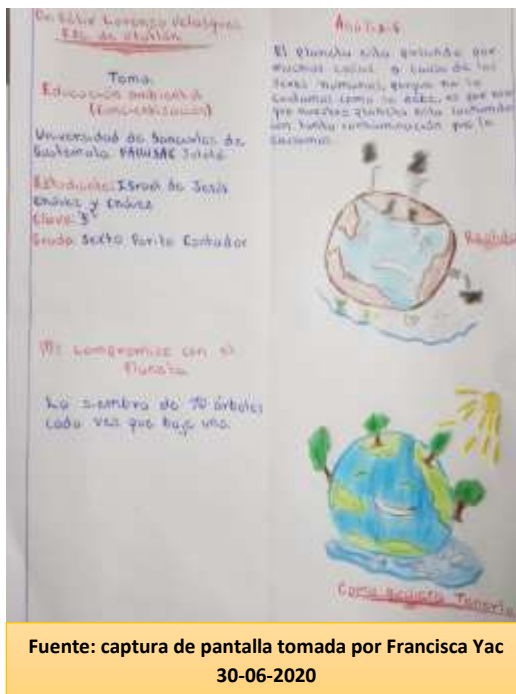 Lorenzo Velásquez
Tema:
Educación ambiental
(Concientización)
Universidad de San Carlos de
Guatemala FAHUSAC Sololá
Estudiante: Israel de Jesús
Chávez y Chávez
Clave: 3
Grado: Sexto Perito Contador
Mi compromiso con el
Planeta
La siembra de 10 árboles
cada vez que baje uno.
Análisis
El planeta esta pasando por
muchas cosas a causa de los
seres humanos, porque no lo
cuidamos como se debe, es por eso
que nuestro planeta esta luchando
con tanta contaminación que le
causamos.
Realidad
Como quisiera Tenerlo
Fuente: captura de pantalla tomada por Francisca Yac
30-06-2020